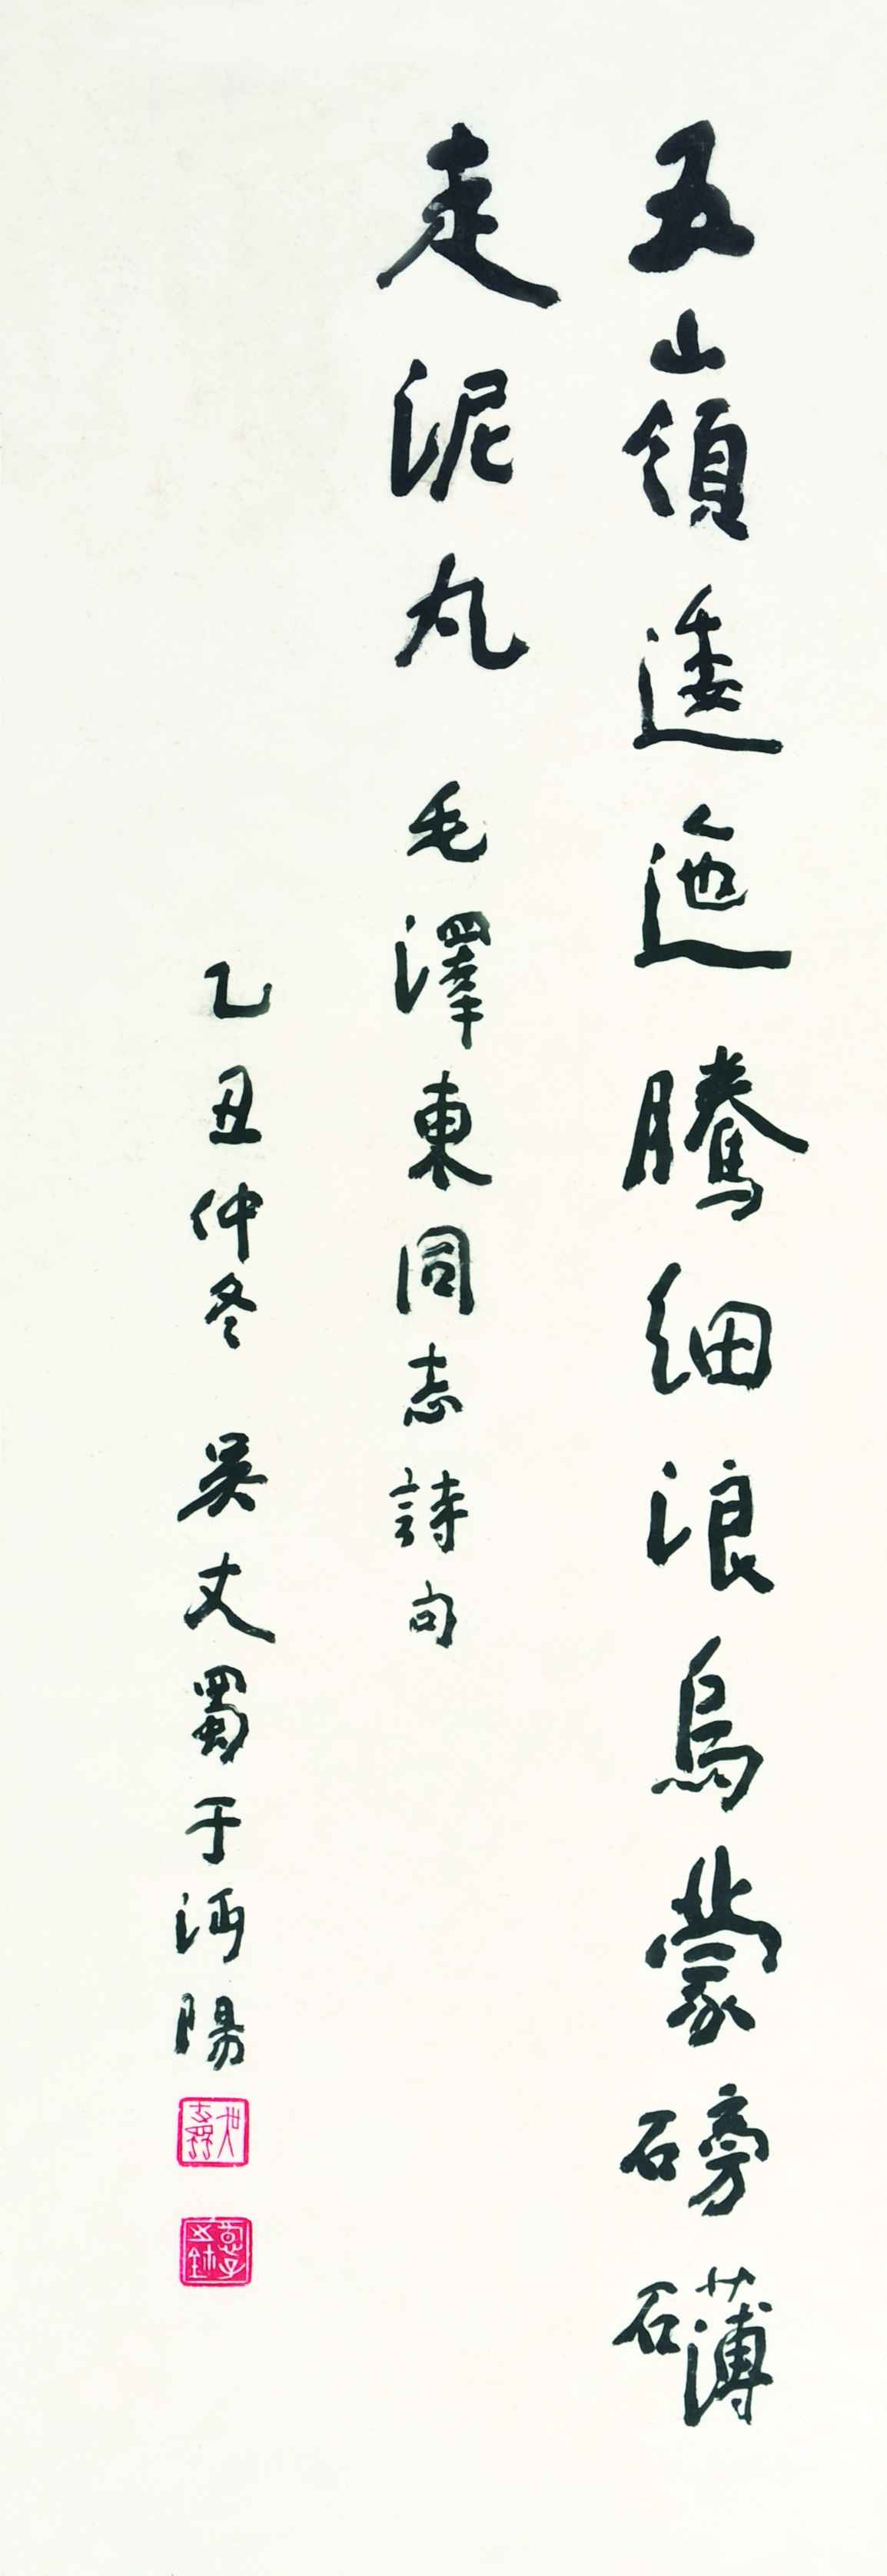 五嶺逶迤騰細浪烏蒙磅礴
走泥丸 毛澤東同志詩句
乙丑仲冬 吳丈蜀于沔陽